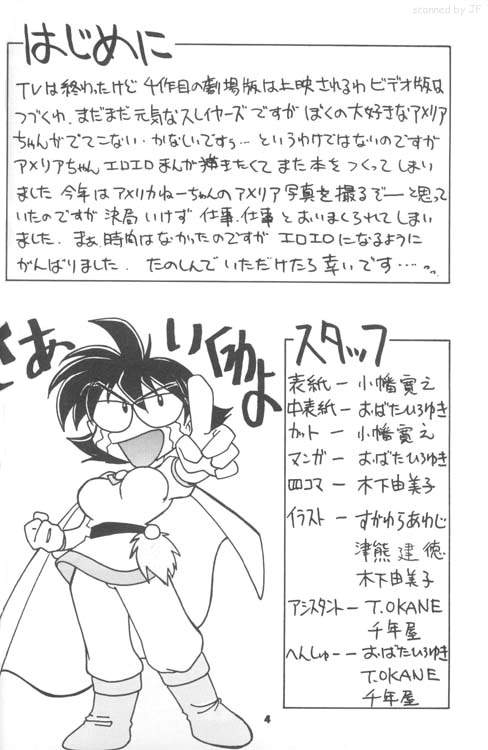 scanned by JF
はじめに
TVは終わったけど 4作目の劇場版は上映されるわ ビデオ版は
つづくわ、まだまだ 元気なスレイヤーズですが ぼくの大好きなアメリア
ちゃんがでてこない・かなしいですぅ… というわけではないのですが
アメリアちゃん エロエロまんが描きたくて また本をつくってしまい
ました 今年は アメリカねーちゃんのアメリア写真を撮るでーと思って
いたのですが 決局いけず 仕事、仕事 とおいまくられてしまい
ました. まぁ、時間はなかったのですが エロエロになるように
がんばりました. たのしんでいただけたら 幸いです…
さあ いくわよ
スタッフ
表紙ー 小幡寛之
中表紙ー おばたひろゆき
カットー 小幡寛之
マンガー おばたひろゆき
四コマー 木下由美子
イラストー すがわらあわじ
津熊建徳
木下由美子
アシスタントー T.OKANE
千年屋
へんしゅーー おばたひろゆき
T.OKANE
千年屋
4